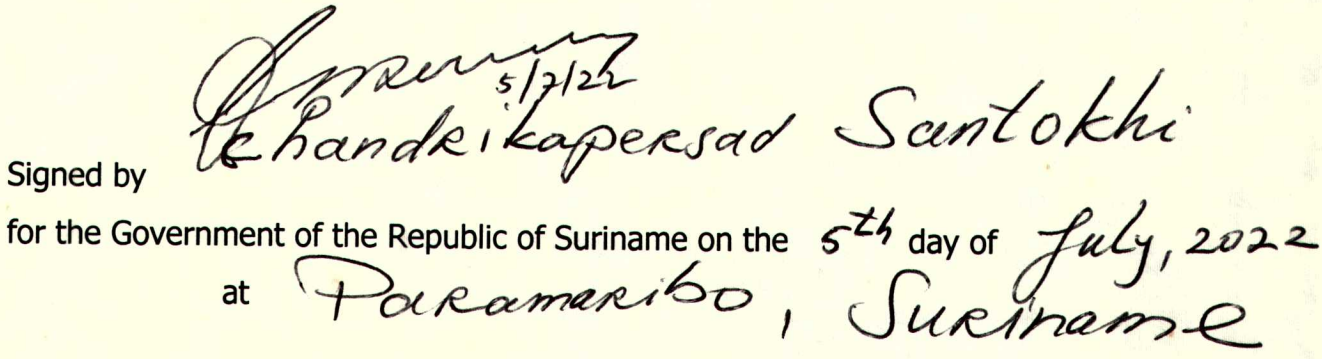 5/7/22
Chandrikapersad Santokhi
Signed by
for the Government of the Republic of Suriname on the 5th day of July, 2022
at Paramaribo, Suriname